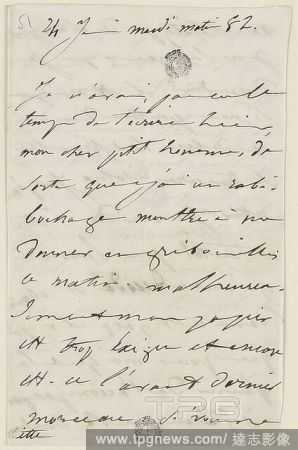 51
24 J mardi matin 82.
Je n'avais pas eu le
temps de t'écrire hier
mon cher ptit homme, de
sorte que j'ai un rabâ-
chage monstre à me
donner en gribouillis
ce matin malheureu-
sement mon papier
est trop exigu et encore
est-ce l'avant dernier
morceau
TPG
www.tpgnews.com/達志影像